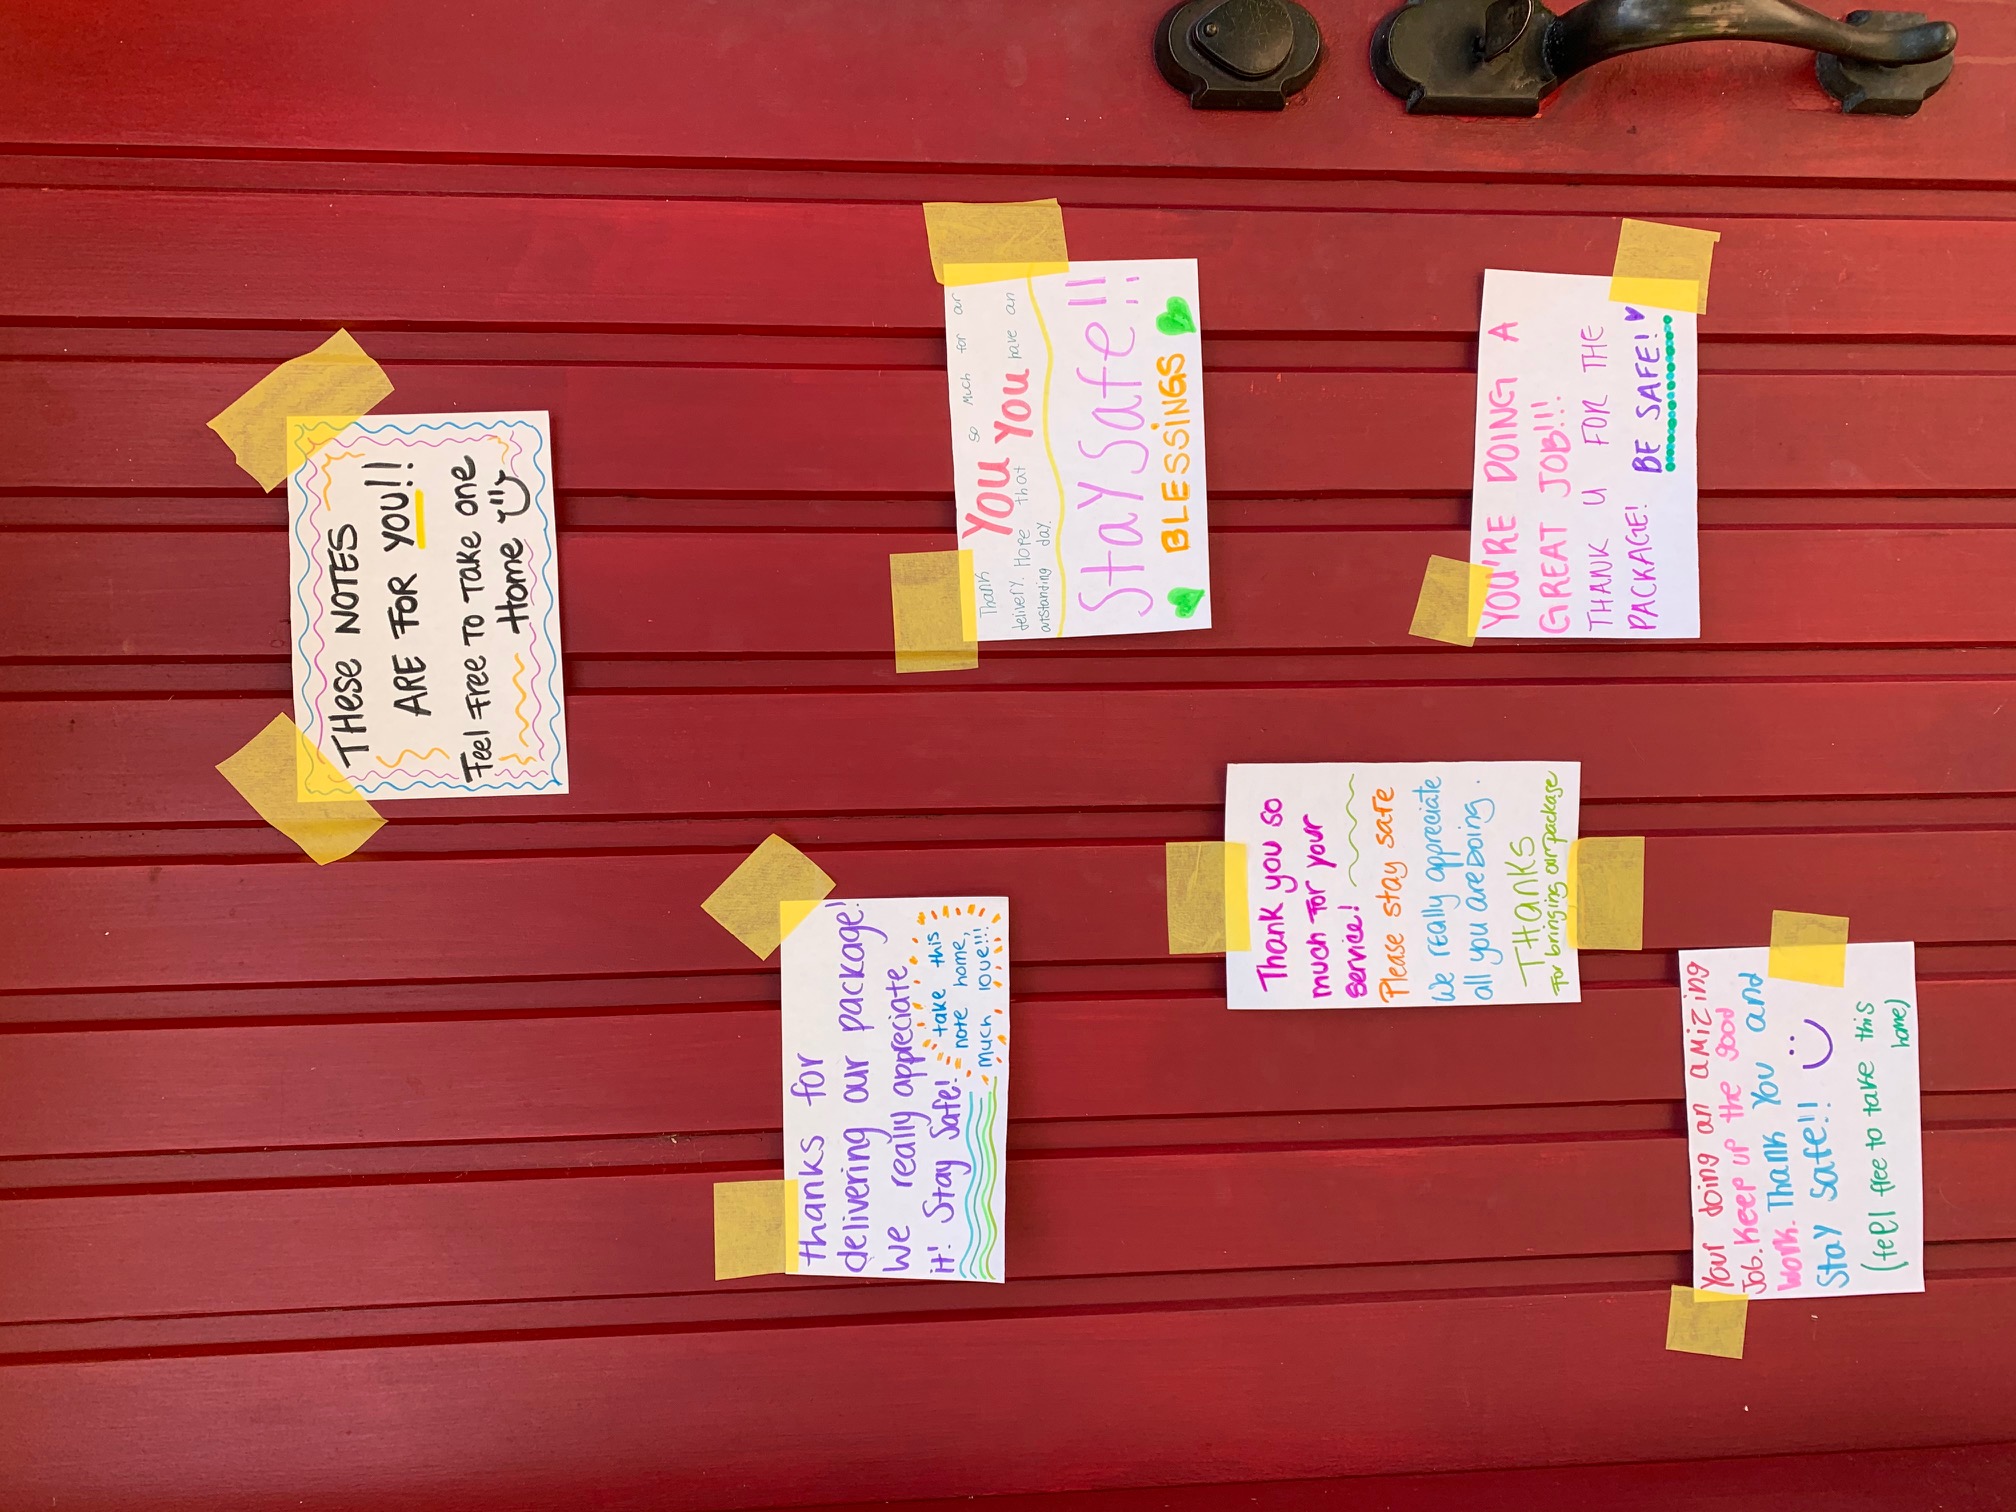 THese NOTES
ARE FOR YOU!!
Feel Free TO Take one
Home
thanks for
delivering our package!
We really appreciate
it! Stay Safe!
take this
note home,
much love!!!
Thank YOU so Much for ar
delivery. Hope that YOU have an
outstanding day.
Stay Safe!!
BLESSiNGS
Thank you so
much For your
service!
Please stay safe
We really appreciate
all you are Doing.
THanKS
For bringing our package
YOU'RE DOING A
GREAT JOB!!!
THANK U FOR THE
PACKAGE! BE SAFE!
Your doing an aMiZing
Job. Keep up the good
work. Thank You and
Stay Safe!!
(feel free to take this
home)